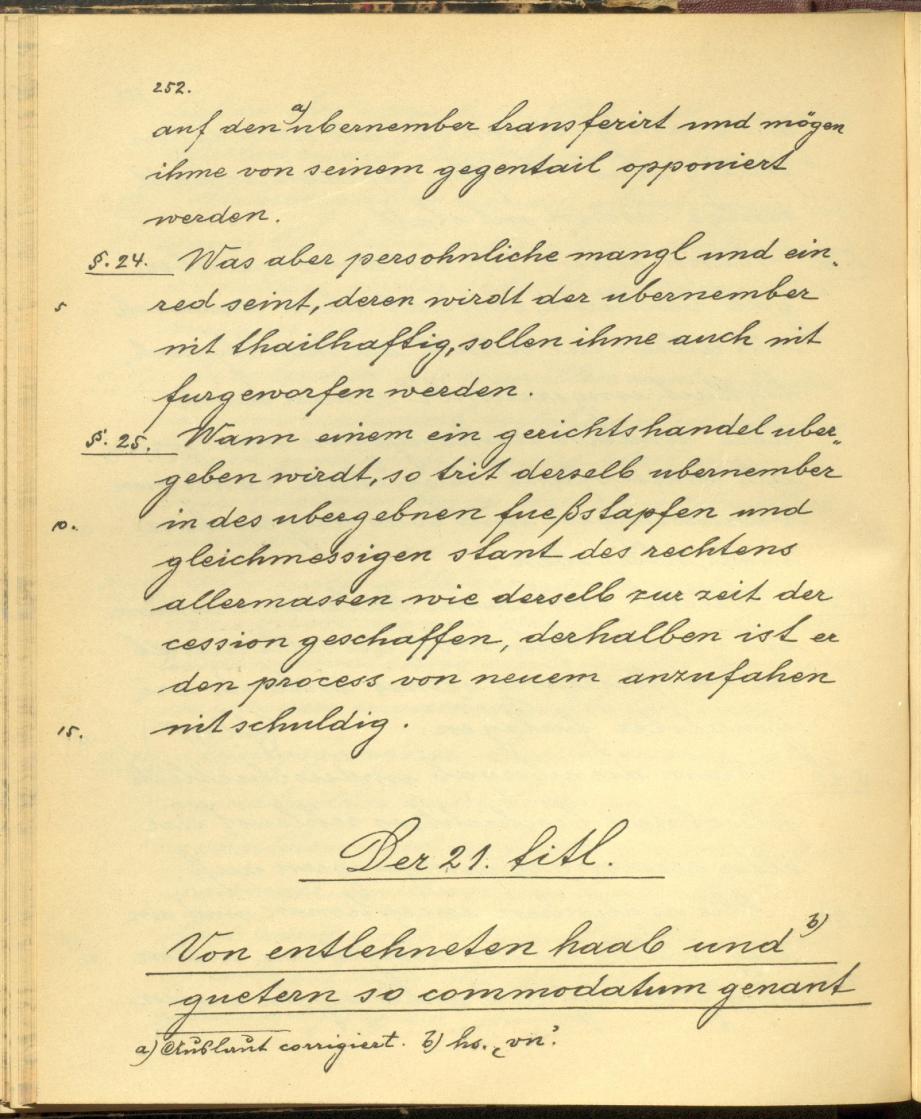 252.
auf den a) ubernember transferirt und mögen
ihme von seinem gegentail opponiert
werden.
§. 24. Was aber persohnliche mangl und ein-
5 red seint, deren wirdt der ubernember
nit thailhaftig, sollen ihme auch nit
furgeworfen werden.
§. 25. Wann einem ein gerichtshandel uber-
geben wirdt, so trit derselb ubernember
10. in des ubergebnen fueßstapfen und
gleichmessigen stant des rechtens
allermassen wie derselb zur zeit der
cession geschaffen, derhalben ist er
den process von neuem anzufahen
15. nit schuldig.
Der 21. titl.
Von entlehneten haab und b)
guetern so commodatum genant
a) Auslaut corrigiert. b) hs. ‚vn‘.